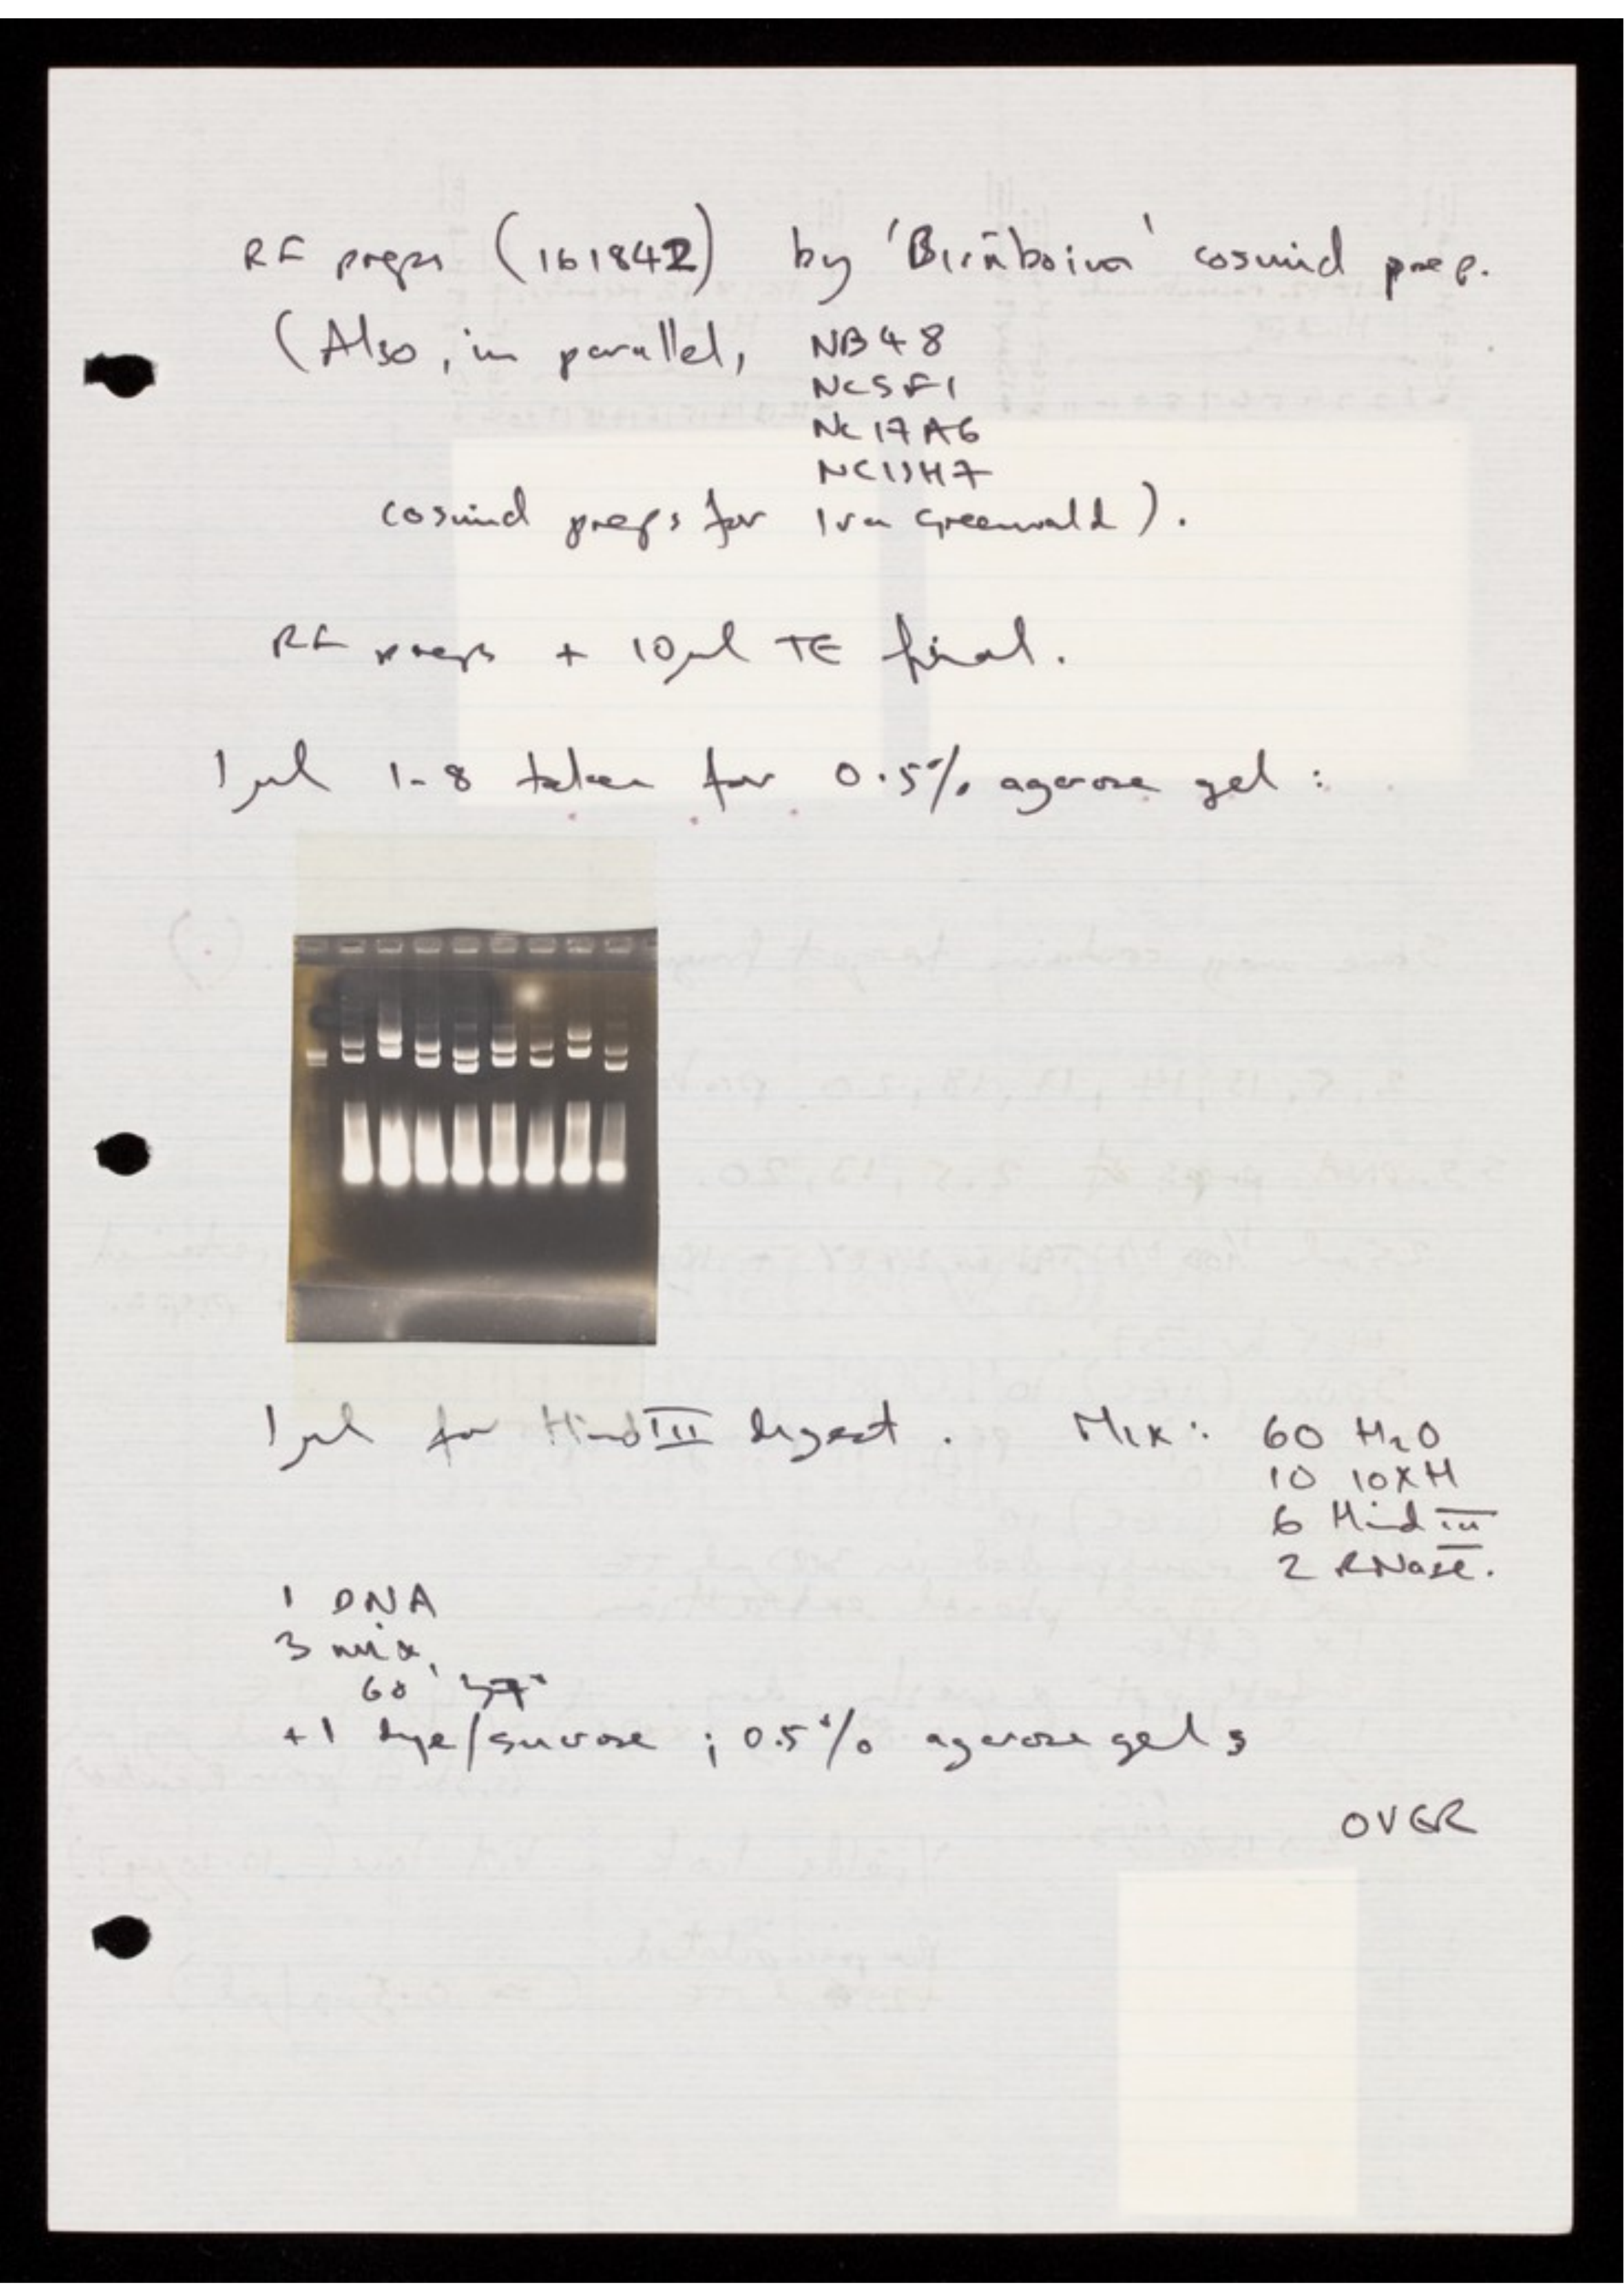 RF preps (161842) by 'Birnboim' cosmid prep.
(Also, in parallel, NB48
NC5F1
NC17A6
cosmid preps for Iva Greenwald).
RF preps + 10µl TE final.
1µl 1-8 taken for 0.5% agarose gel :
1µl for HindIII digest. Mix: 60 H2O
10 10XH
6 HindIII
2 RNase.
1 DNA
3 mix,
60' 37°
+1 dye/sucrose ; 0.5% agarose gels
OVER